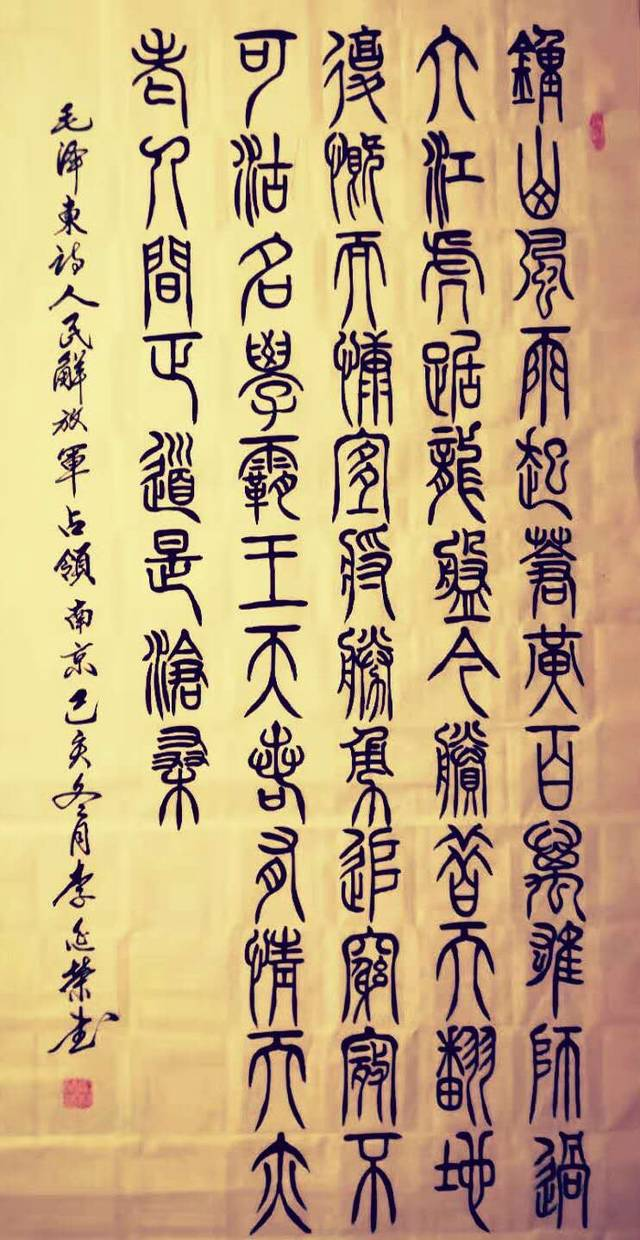 鍾山風雨起蒼黃百萬雄師過
大江虎踞龍盤今勝昔天翻地
復慨而慷宜將勝追窮寇不
可沽名學霸王天若有情天亦
老人間正道是滄桑
毛泽東诗人民解放軍占領南京己亥冬月李延榮书